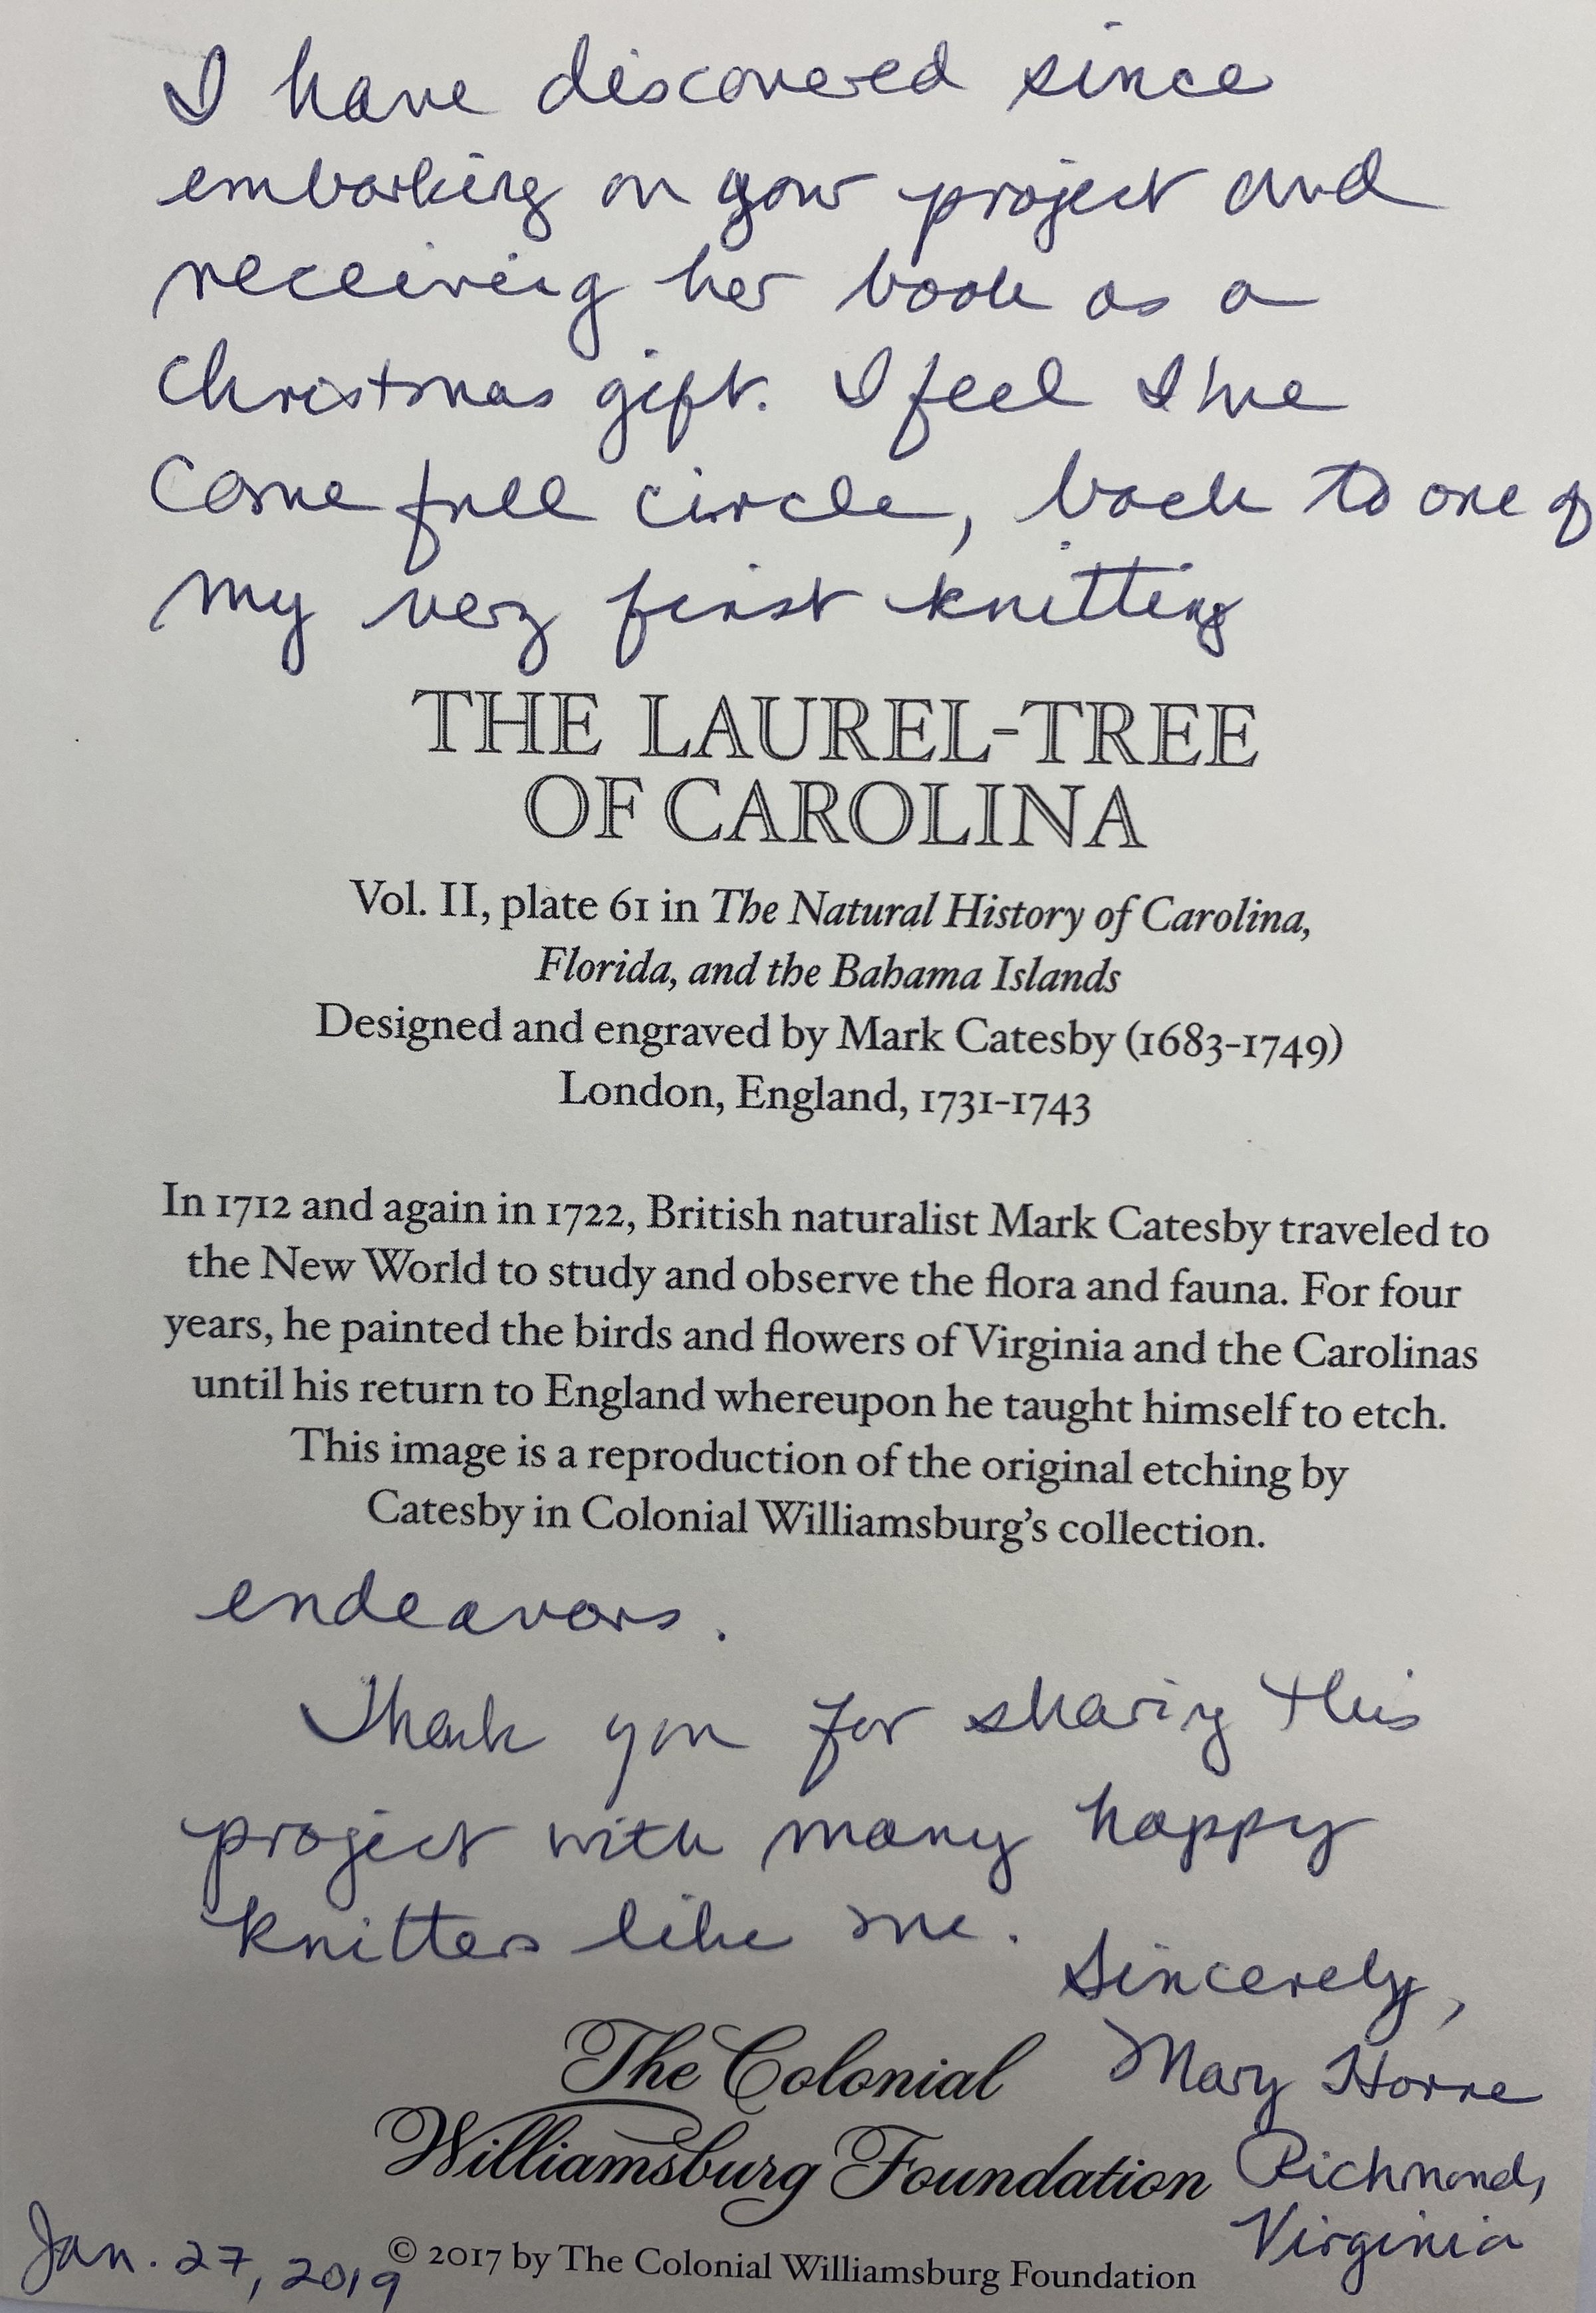 I have discovered since
embarking on your project and
receiving her book as a
Christmas gift. I feel I've
come full circle, back to one of
my very first knitting
THE LAUREL-TREE
OF CAROLINA
Vol. II, plate 61 in The Natural History of Carolina,
Florida, and the Bahama Islands
Designed and engraved by Mark Catesby (1683-1749)
London, England, 1731-1743
In 1712 and again in 1722, British naturalist Mark Catesby traveled to
the New World to study and observe the flora and fauna. For four
years, he painted the birds and flowers of Virginia and the Carolinas
until his return to England whereupon he taught himself to etch.
This image is a reproduction of the original etching by
Catesby in Colonial Williamsburg's collection.
endeavors.
Thank you for sharing this
project with many happy
knitters like me.
Sincerely,
Mary Horne
Richmond,
Virginia
The Colonial
Williamsburg Foundation
Jan. 27, 2019
© 2017 by The Colonial Williamsburg Foundation